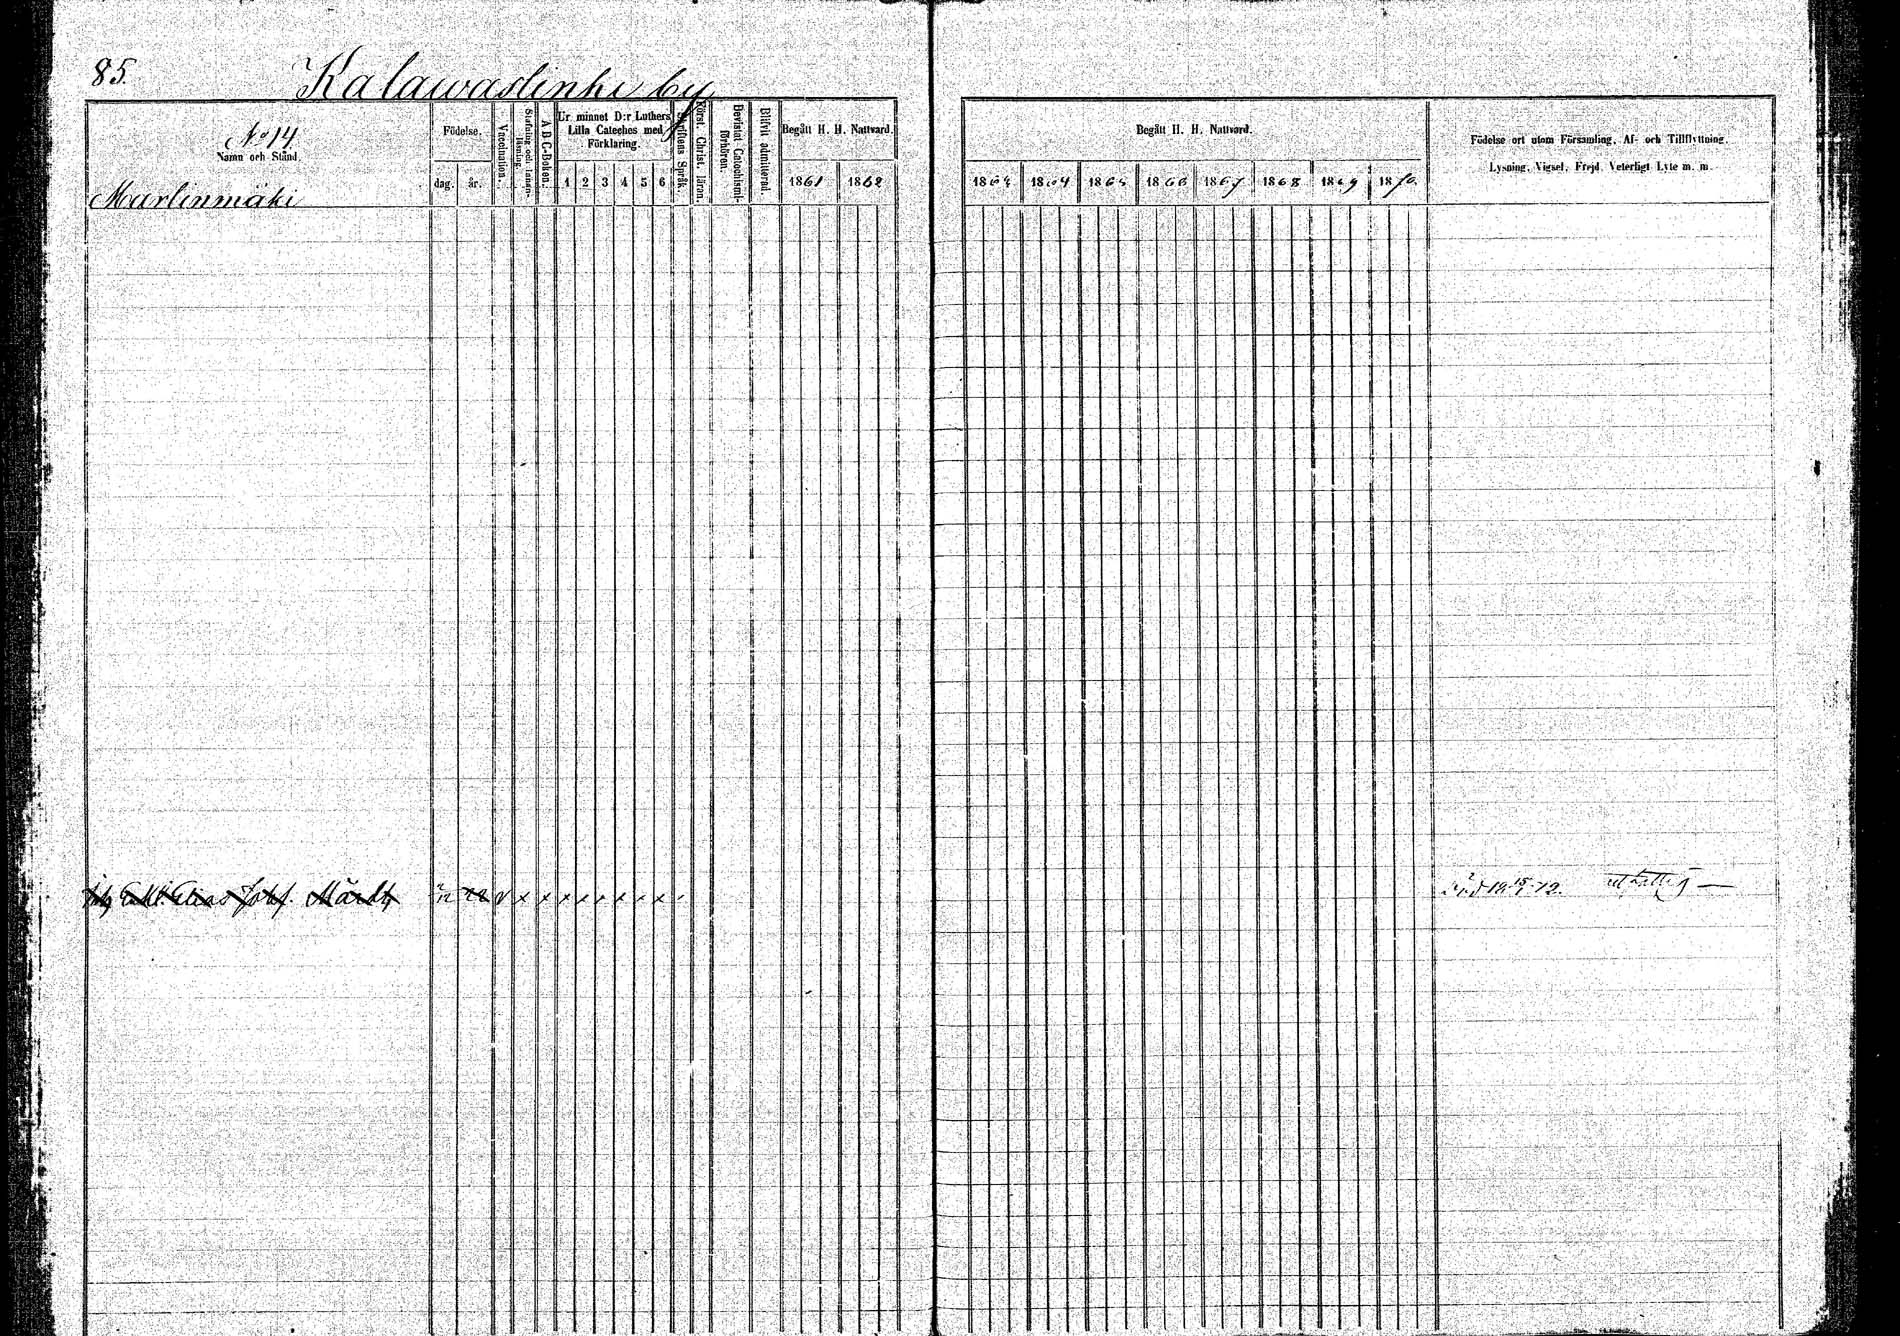 85.
Kalawaslinki by
No 14
Namn och Stånd.
Födelse.
dag. år.
Vaccination.
Stafning och Innan-läsning.
A B C-Boken.
Ur minnet D:r Luthers Lilla Catéches med Förklaring.
1 2 3 4 5 6
Skriftens Språk
Först. Christ. läran.
Bevistat Catechismi-förhören.
Blifvit admitterad.
Begått H. H. Nattvard.
1861 1862
Martinmäki
Elias Joh. Märdt
Begått H. H. Nattvard.
1863 1864 1865 1866 1867 1868 1869 1870.
Födelse ort utom Församling, Af- och Tillflyttning.
Lysning, Vigsel, Frejd, Veterligt Lyte m. m.